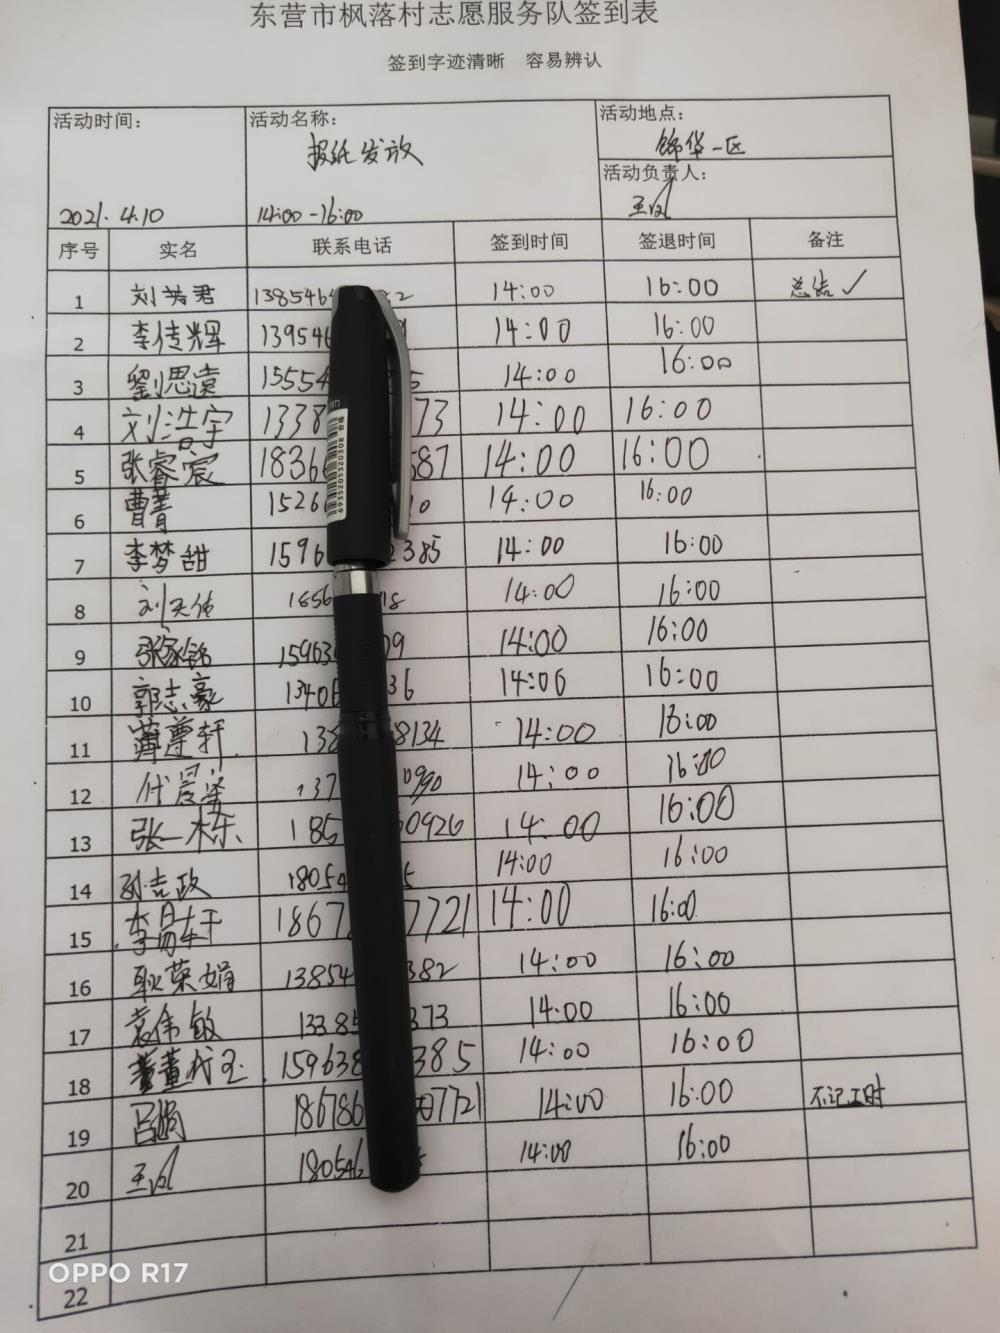 东营市枫落村志愿服务队签到表
签到字迹清晰 容易辨认
活动时间: 活动名称: 活动地点:
报纸发放 锦华一区
活动负责人:
2021.4.10 14:00-16:00 王凤
序号 实名 联系电话 签到时间 签退时间 备注
1 刘 君 1385464 2 14:00 16:00 总结 ✓
2 李传辉 13954 14:00 16:00
3 劉思遠 15554 5 14:00 16:00
4 刘浩宇 1338 73 14:00 16:00
5 张睿宸 1836 587 14:00 16:00
6 曹菁 1526 0 14:00 16:00
7 李梦甜 1596 2385 14:00 16:00
8 刘天佑 1856 18 14:00 16:00
9 张家铭 15963 09 14:00 16:00
10 郭志豪 1340 36 14:00 16:00
11 轩 138 8134 14:00 16:00
12 代晨 137 0990 14:00 16:00
13 张一木乐 185 50926 14:00 16:00
14 孙志政 18054 5 14:00 16:00
15 李昂轩 1867 7721 14:00 16:00
16 耿荣娟 13854 382 14:00 16:00
17 袁伟敏 13385 373 14:00 16:00
18 董 玉 159638 385 14:00 16:00
19 吕娟 186786 07721 14:00 16:00 不记工时
20 王凤 180546 14:00 16:00
21
22
6935205320308
OPPO R17